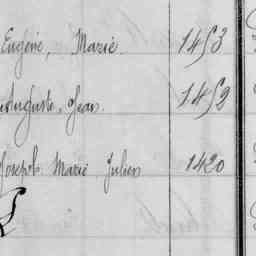 Eugène, Marie 1453
Auguste, Jean 1459
Joseph Marie Julien 1420